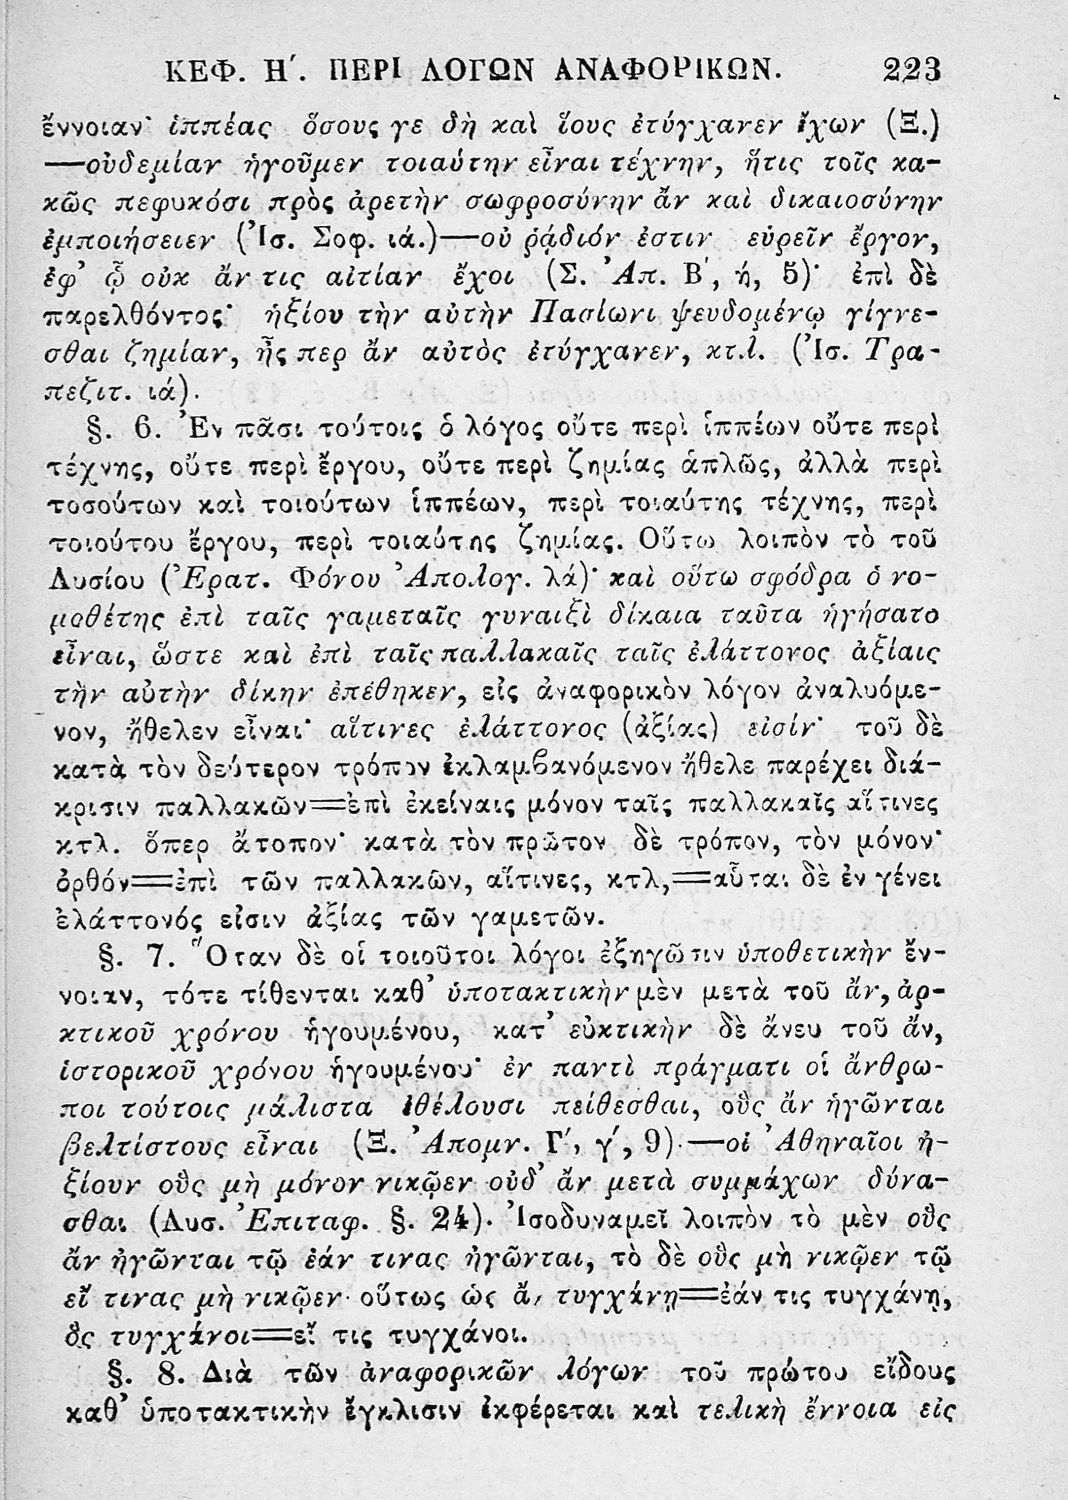 ΚΕΦ. Η΄. ΠΕΡΙ ΛΟΓΩΝ ΑΝΑΦΟΡΙΚΩΝ. 223
ἔννοιαν· ἱππέας ὅσους γε δὴ καὶ ἵους ἐτύγχανεν ἔχων (Ξ.)
—οὐδεμίαν ἡγοῦμεν τοιαύτην εἶναι τέχνην, ἥτις τοῖς κα-
κῶς πεφυκόσι πρὸς ἀρετὴν σωφροσύνην ἄν καὶ δικαιοσύνην
ἐμποιήσειεν (Ἰσ. Σοφ. ιά.)—οὐ ῥᾴδιόν ἐστιν εὑρεῖν ἔργον,
ἐφ᾽ ᾧ οὐκ ἄν τις αἰτίαν ἔχοι (Σ. Ἀπ. Β΄, ή, 5)· ἐπὶ δὲ
παρελθόντος· ἠξίου τὴν αὐτὴν Πασίωνι ψευδομένῳ γίγνε-
σθαι ζημίαν, ἧς περ ἄν αὐτὸς ἐτύγχανεν, κτ.λ. (Ἰσ. Τρα-
πεζιτ. ιά).
§. 6. Ἐν πᾶσι τούτοις ὁ λόγος οὔτε περὶ ἱππέων οὔτε περὶ
τέχνης, οὔτε περὶ ἔργου, οὔτε περὶ ζημίας ἁπλῶς, ἀλλὰ περὶ
τοσούτων καὶ τοιούτων ἱππέων, περὶ τοιαύτης τέχνης, περὶ
τοιούτου ἔργου, περὶ τοιαύτης ζημίας. Οὕτω λοιπὸν τὸ τοῦ
Λυσίου (Ἐρατ. Φόνου Ἀπολογ. λά)· καὶ οὕτω σφόδρα ὁ νο-
μοθέτης ἐπὶ ταῖς γαμεταῖς γυναιξὶ δίκαια ταῦτα ἡγήσατο
εἶναι, ὥστε καὶ ἐπὶ ταῖς παλλακαῖς ταῖς ἐλάττονος ἀξίαις
τὴν αὐτὴν δίκην ἐπέθηκεν, εἰς ἀναφορικὸν λόγον ἀναλυόμε-
νον, ἤθελεν εἶναι· αἵτινες ἐλάττονος (ἀξίας) εἰσίν· τοῦ δὲ
κατὰ τὸν δεύτερον τρόπον ἐκλαμβανόμενον ἤθελε παρέχει διά-
κρισιν παλλακῶν=ἐπὶ ἐκείναις μόνον ταῖς παλλακαῖς αἵτινες
κτλ. ὅπερ ἄτοπον· κατὰ τὸν πρῶτον δὲ τρόπον, τὸν μόνον·
ὀρθόν=ἐπὶ τῶν παλλακῶν, αἵτινες, κτλ,=αὗται δὲ ἐν γένει
ἐλάττονός εἰσιν ἀξίας τῶν γαμετῶν.
§. 7. Ὅταν δὲ οἱ τοιοῦτοι λόγοι ἐξηγῶσιν ὑποθετικὴν ἔν-
νοιαν, τότε τίθενται καθ᾽ ὑποτακτικὴν μὲν μετὰ τοῦ ἄν, ἀρ-
κτικοῦ χρόνου ἡγουμένου, κατ᾽ εὐκτικὴν δὲ ἄνευ τοῦ ἄν,
ἱστορικοῦ χρόνου ἡγουμένου· ἐν παντὶ πράγματι οἱ ἄνθρω-
ποι τούτοις μάλιστα ἐθέλουσι πείθεσθαι, οὓς ἄν ἡγῶνται
βελτίστους εἶναι (Ξ. Ἀπομν. Γ΄, γ΄, 9)·—οἱ Ἀθηναῖοι ἠ-
ξίουν οὓς μὴ μόνον νικῷεν οὐδ᾽ ἄν μετὰ συμμάχων δύνα-
σθαι (Λυσ. Ἐπιταφ. §. 24). Ἰσοδυναμεῖ λοιπὸν τὸ μὲν οὓς
ἄν ἡγῶνται τῷ ἐάν τινας ἡγῶνται, τὸ δὲ οὓς μὴ νικῷεν τῷ
εἴ τινας μὴ νικῷεν· οὕτως ὡς ἄν τυγχάνῃ=ἐάν τις τυγχάνῃ,
ὃς τυγχάνοι=εἴ τις τυγχάνοι.
§. 8. Διὰ τῶν ἀναφορικῶν λόγων τοῦ πρώτου εἴδους
καθ᾽ ὑποτακτικὴν ἔγκλισιν ἐκφέρεται καὶ τελικὴ ἔννοια εἰς